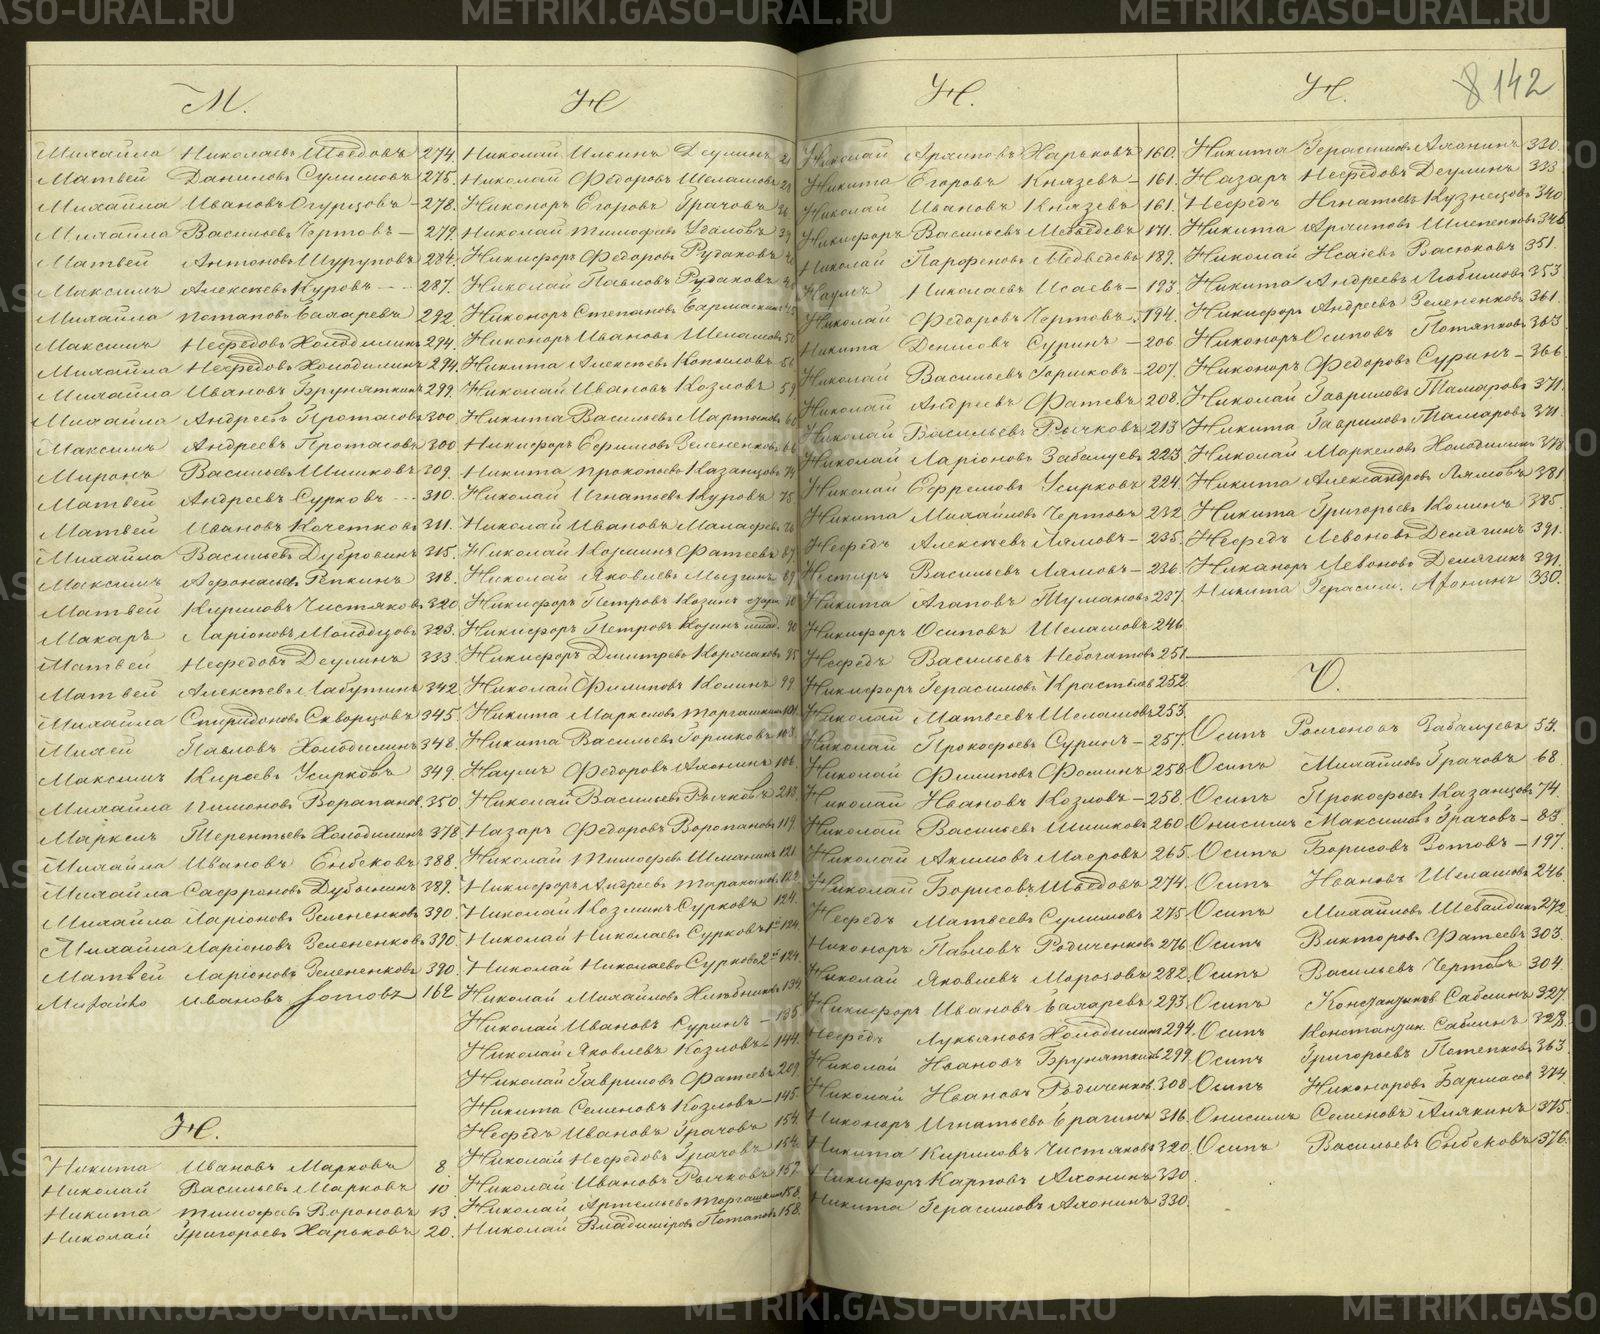 METRIKI.GASO-URAL.RU
8 142
М.
Михайла Николаевъ Шведовъ 274
Матвей Даниловъ Сулимовъ 275.
Михайла Ивановъ Огурцовъ 278.
Михайла Васильевъ Чертовъ 279.
Матвей Антоновъ Шуруповъ 284.
Максимъ Алексѣевъ Куровъ 287.
Михайла Потаповъ Баларевъ 292
Максимъ Нефедовъ Холодилинъ 294.
Михайла Нефедовъ Холодилинъ 294.
Михайла Ивановъ Бруняткинъ 299.
Михайла Андреевъ Протасовъ 300
Максимъ Андреевъ Протасовъ 300
Миронъ Васильевъ Шишковъ 309.
Матвей Андреевъ Сурковъ 310.
Матвей Ивановъ Кочетковъ 311.
Михайла Васильевъ Дубровинъ 315.
Максимъ Афонасьевъ Репкинъ 318.
Матвей Кириловъ Чистяковъ 320
Макаръ Ларіоновъ 323.
Матвей Нефедовъ Деулинъ 333
Матвей Алексѣевъ Лабутинъ 342
Михайла Спиридоновъ Скворцовъ 345.
Михей Павловъ Холодилинъ 348.
Максимъ Киреевъ Усирковъ 349.
Михайла Пимоновъ Ворапанов. 350
Маркелъ Терентьевъ Холодилинъ 378
Михайла Ивановъ Енбековъ 388
Михайла Сафроновъ Дубынинъ 389.
Михайла Ларіоновъ Зелененковъ 390.
Михайла Ларіоновъ Зелененковъ 390.
Матвей Ларіоновъ Зелененковъ 390.
Михайло Ивановъ Зотовъ 162
Н.
Никита Ивановъ Марковъ 8
Николай Васильевъ Марковъ 10
Никита Тимофеевъ Вороновъ 13.
Николай Григорьевъ Харьковъ 20.
Н
Николай Ильинъ Деулинъ
Николай Федоровъ Шелашовъ
Никоноръ Егоровъ Грачовъ
Николай Тимофеевъ Удаловъ
Никифоръ Федоровъ Рудаковъ
Николай Павловъ Рудаковъ
Никоноръ Степановъ
Никоноръ Ивановъ Шелашовъ
Никита Алексѣевъ Копыловъ
Николай Ивановъ Козловъ 59
Никита Васильевъ Мартыновъ
Никифоръ Ефимовъ Зелененковъ
Никита Прокопьевъ Казанцовъ 74
Николай Игнатьевъ Куровъ 75
Николай Ивановъ Малафеевъ
Николай Козминъ Фатеевъ 87
Николай Яковлевъ Мызгинъ 89
Никифоръ Петровъ Козинъ 90
Никифоръ Петровъ Козинъ млад. 90
Никифоръ Дмитревъ Корочаковъ 95
Николай Филиповъ Колинъ 99
Никита Маркеловъ Торгашкинъ 101
Никита Васильевъ Горшковъ 103
Наумъ Федоровъ Ахонинъ 106
Николай Васильевъ Рычковъ 213.
Назаръ Федоровъ Воропановъ 119.
Николай Тимофеевъ Шманинъ 121
Никифоръ Андреевъ Таракановъ 122
Николай Козминъ Сурковъ 124.
Николай Николаевъ Сурковъ 1й 124
Николай Николаевъ Сурковъ 2й 124
Николай Михайловъ Хлѣбниковъ 134
Николай Ивановъ Суринъ 135
Николай Яковлевъ Козловъ 144.
Николай Гавриловъ Фатеевъ 209
Никита Семеновъ Козловъ 145.
Нефедъ Ивановъ Грачовъ 154.
Николай Нефедовъ Грачовъ 154.
Николай Ивановъ Рычковъ 157
Николай Артемьевъ Торгашкинъ 158.
Николай Владиміровъ Потаповъ 158.
Н.
Николай Архиповъ Харьковъ 160.
Никита Егоровъ Князевъ 161.
Николай Ивановъ Князевъ 161.
Никифоръ Васильевъ Медведевъ 171.
Николай Парфеновъ Медведевъ 189.
Наумъ Николаевъ Исаевъ 193.
Николай Федоровъ Чертовъ 194.
Никита Денисовъ Суринъ 206
Николай Васильевъ Горшковъ 207.
Николай Андреевъ Фатевъ 208.
Николай Васильевъ Рычковъ 213
Николай Ларіоновъ Забалуевъ 223.
Николай Ефремовъ Усирковъ 224.
Никита Михайловъ Чертовъ 232
Нефедъ Алексѣевъ Лямовъ 235.
Нестиръ Васильевъ Лямовъ 236.
Никита Агаповъ Тумановъ 237.
Никифоръ Осиповъ Шелашовъ 246
Нефедъ Васильевъ Небогатовъ 251
Никифоръ Герасимовъ 252
Николай Матвеевъ Шелашовъ 253.
Николай Прокофьевъ Суринъ 257.
Николай Филиповъ Фоминъ 258.
Николай Ивановъ Козловъ 258.
Николай Васильевъ Шишковъ 260
Николай Акимовъ Маеровъ 265.
Николай Борисовъ Шведовъ 274.
Нефедъ Матвеевъ Сулимовъ 275
Никоноръ Павловъ Родиченковъ 276
Николай Яковлевъ Морозовъ 282.
Никифоръ Ивановъ Баларевъ 293.
Нефедъ Лукьяновъ Холодилинъ 294.
Николай Ивановъ Бруняткинъ 299.
Николай Ивановъ Родиченковъ 308
Никоноръ Игнатьевъ Брагинъ 316.
Никита Кириловъ Чистяковъ 320
Никифоръ Карповъ Ахонинъ 330
Никита Герасимовъ Ахонинъ 330.
Н.
Никита Герасимовъ Ахонинъ 330.
Назаръ Нефедовъ Деулинъ 333.
Нефедъ Игнатьевъ Кузнецовъ 340
Никита Архиповъ Шлепенковъ 346
Николай Исаіевъ Васюковъ 351.
Никита Андреевъ Любимовъ 353
Никифоръ Андреевъ Зелененковъ 361.
Никоноръ Осиповъ Потяпковъ 363
Никоноръ Федоровъ Суринъ 366
Николай Гавриловъ Тамаровъ 371.
Никита Гавриловъ Тамаровъ 371.
Николай Маркеловъ Холодилинъ 378.
Никита Александровъ Лямовъ 381
Никита Григорьевъ Колинъ 385.
Нефедъ Левоновъ Делягинъ 391.
Никаноръ Левоновъ Делягинъ 391.
Никита Герасим. Афонинъ 330.
О.
Осипъ Родіоновъ Забалуевъ 53.
Осипъ Михайловъ Грачовъ 68.
Осипъ Прокофьевъ Казанцовъ 74.
Онисимъ Максимовъ Грачовъ 83.
Осипъ Борисовъ Зотовъ 197.
Осипъ Ивановъ Шелашовъ 246.
Осипъ Михайловъ Шевалдинъ 272.
Осипъ Викторовъ Фатеевъ 303.
Осипъ Васильевъ Чертовъ 304.
Осипъ Константиновъ Саблинъ 327.
Осипъ Константин. Саблинъ 328.
Осипъ Григорьевъ Потепковъ 363.
Осипъ Никоноровъ Бармасов 374.
Онисимъ Семеновъ Алякинъ 375.
Осипъ Васильевъ Енбековъ 376.
METRIKI.GASO-URAL.RU